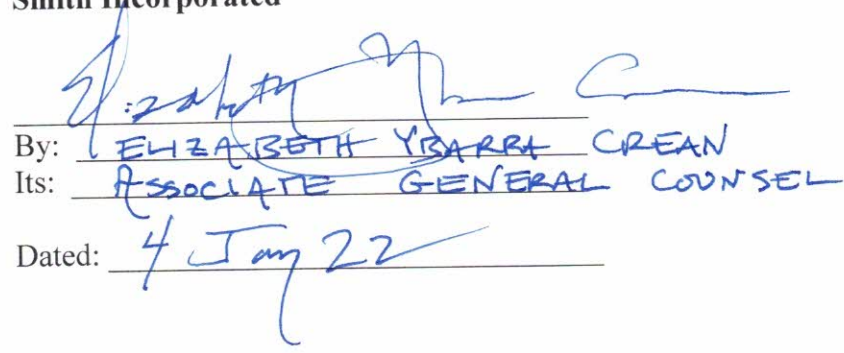 Smith Incorporated
Elizabeth Y C
By: ELIZABETH YBARRA CREAN
Its: ASSOCIATE GENERAL COUNSEL
Dated: 4 Jan 22